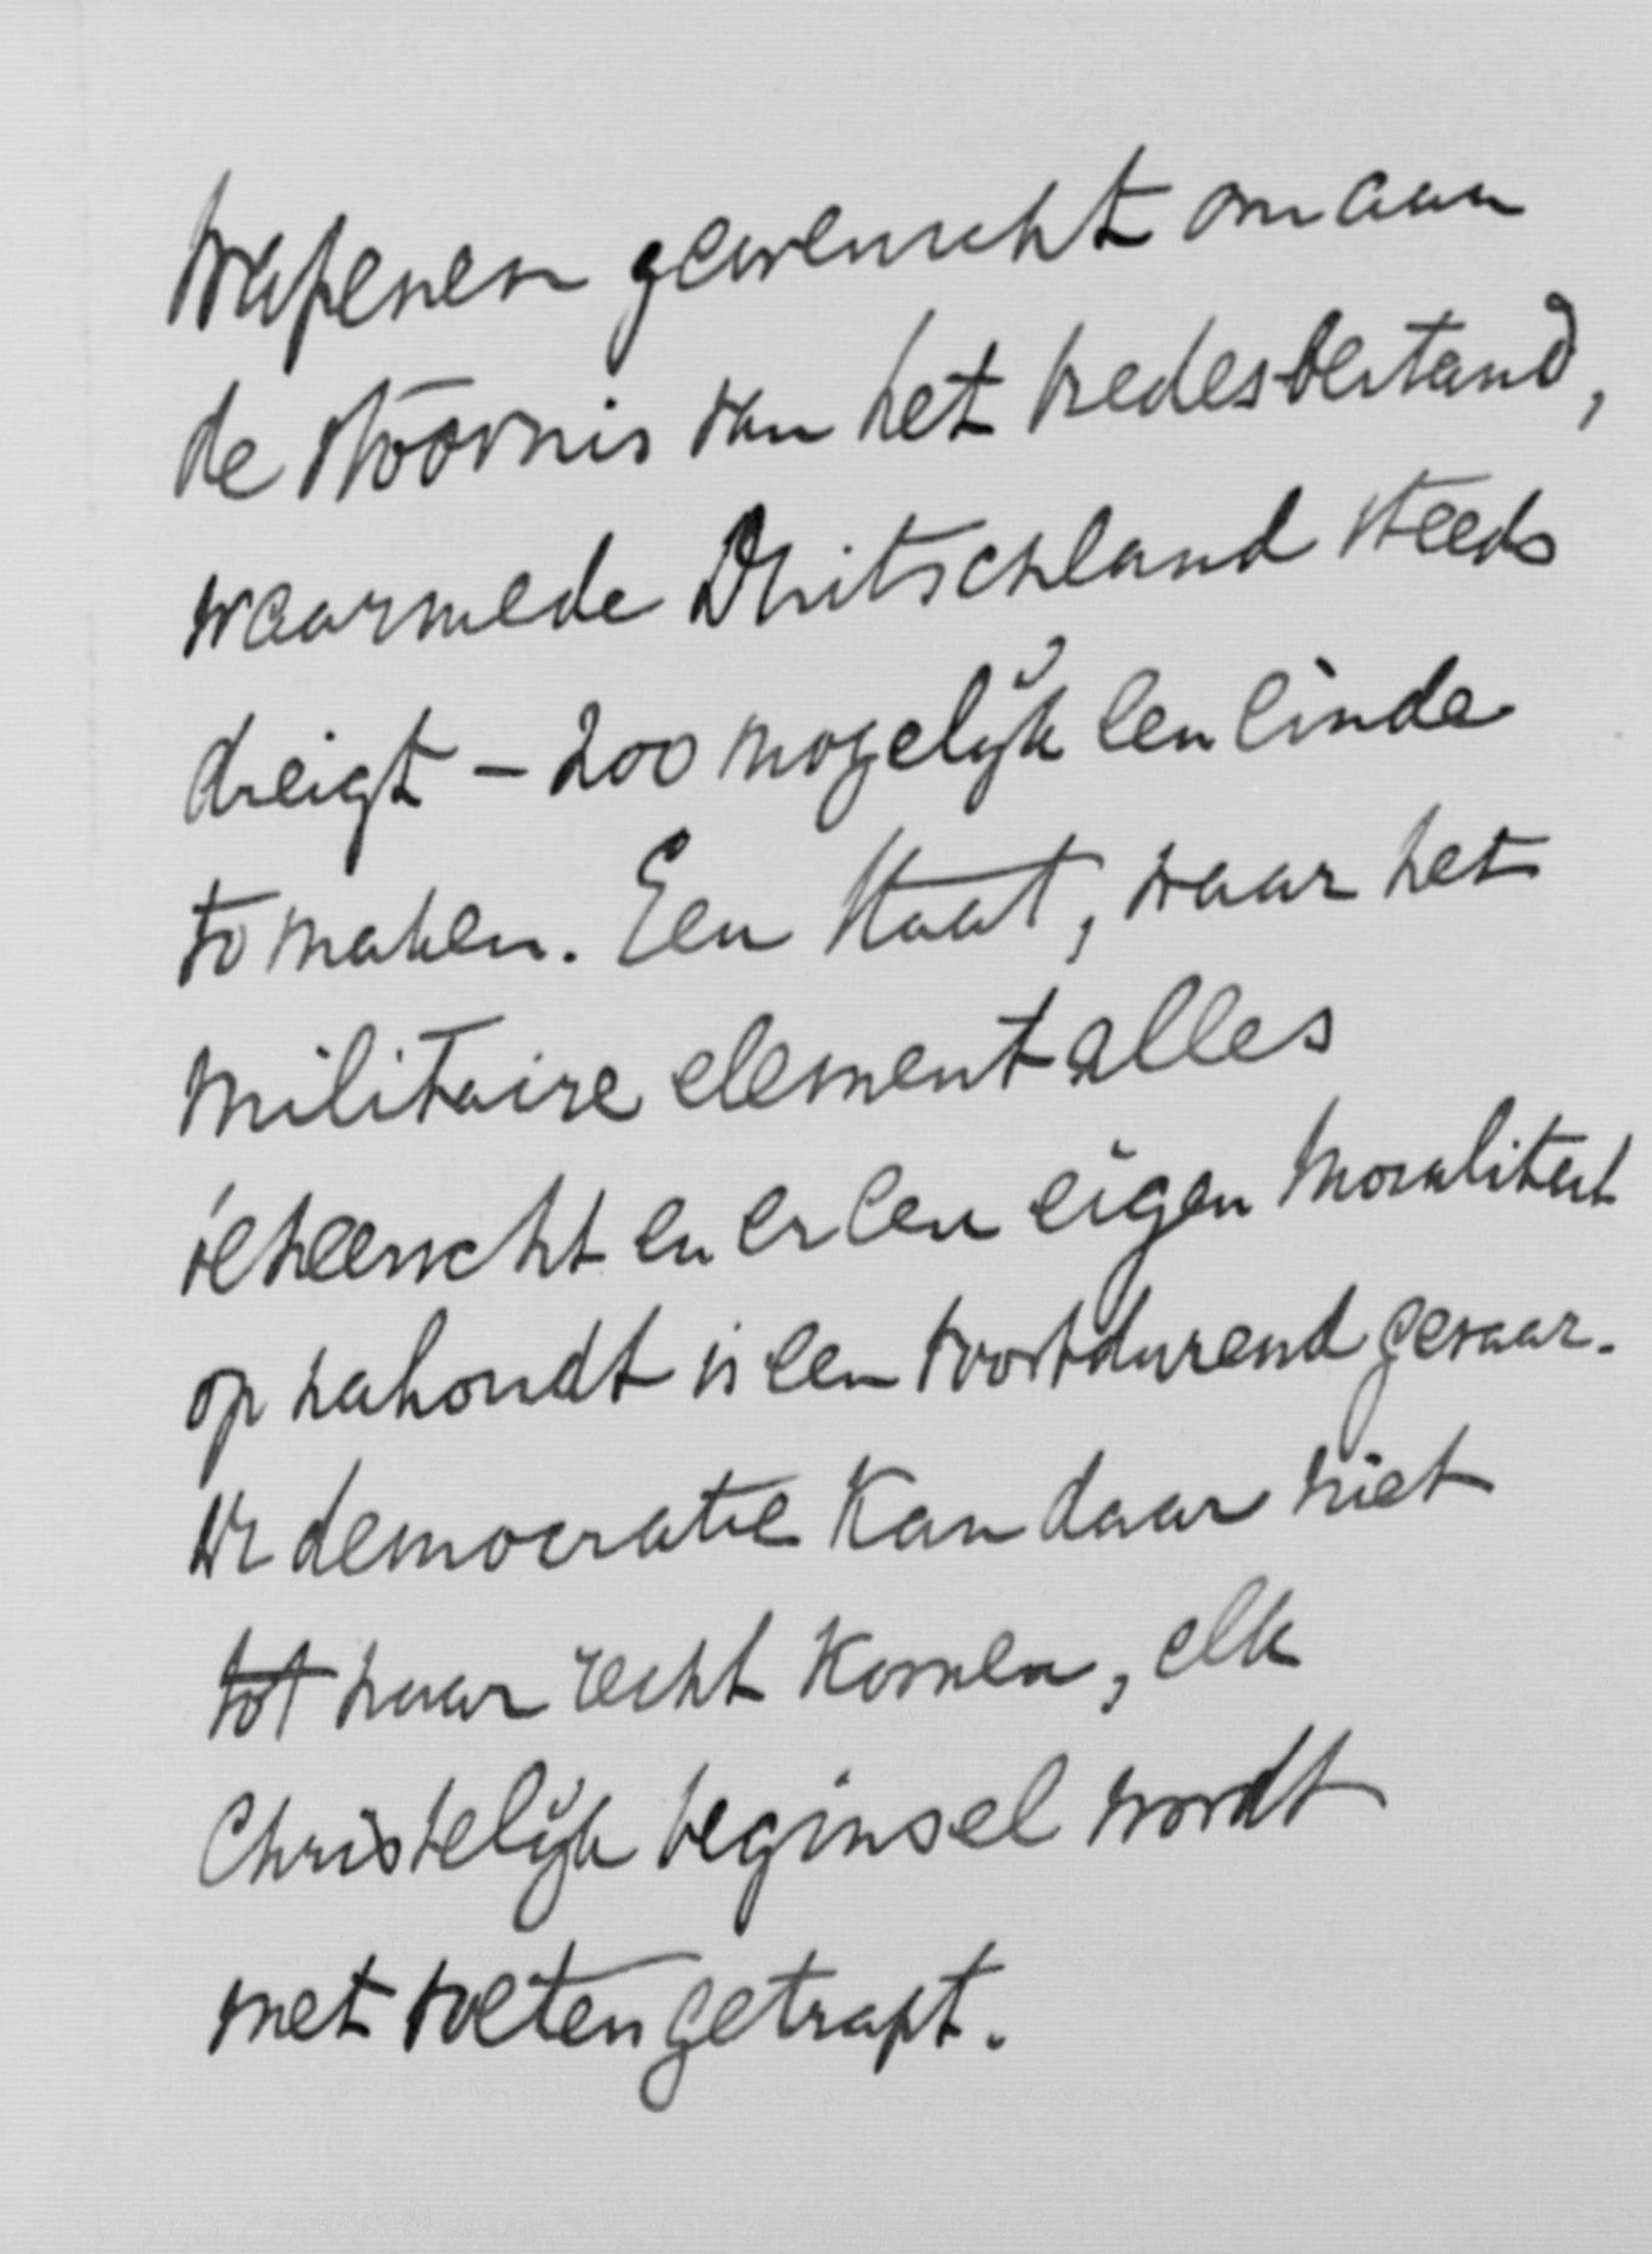 wapenen gewenscht om aan
de stoornis van het vredesbestand,
waarmede Duitschland steeds
dreigt – zoo mogelijk een einde
te maken. Een Staat, waar het
militaire element alles
beheerscht en er een eigen moraliteit
op nahoudt is een voortdurend gevaar.
De democratie kan daar niet
tot haar recht komen, elk
Christelijk beginsel wordt
met voeten getrapt.